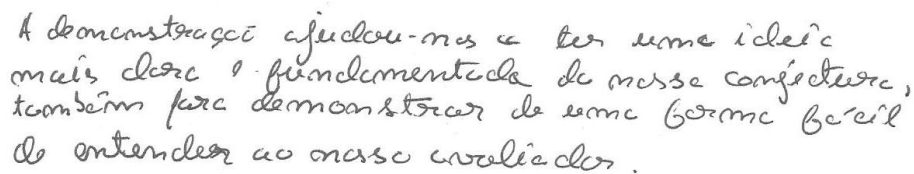 A demonstração ajudou-nos a ter uma ideia
mais clara e fundamentada da nossa conjectura,
também para demonstrar de uma forma fácil
de entender ao nosso avaliador.